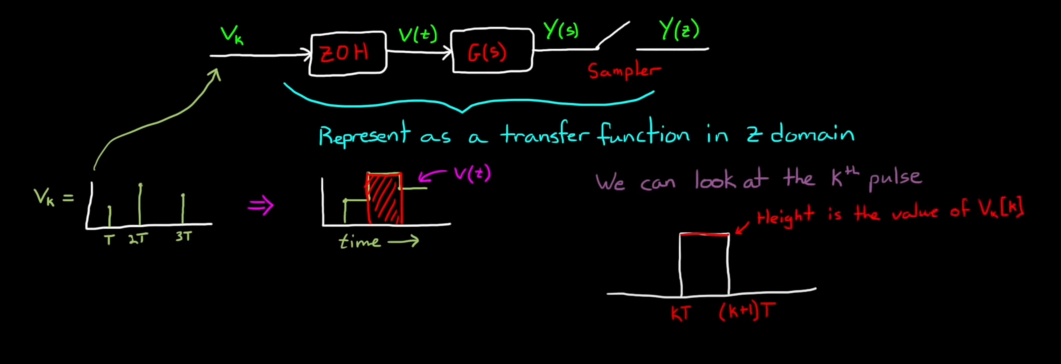 V_k
ZOH
V(t)
G(s)
Y(s)
Y(z)
Sampler
Represent as a transfer function in z domain
V_k =
T 2T 3T
⇒
V(t)
time →
We can look at the k^th pulse
Height is the value of V_k[k]
kT (k+1)T